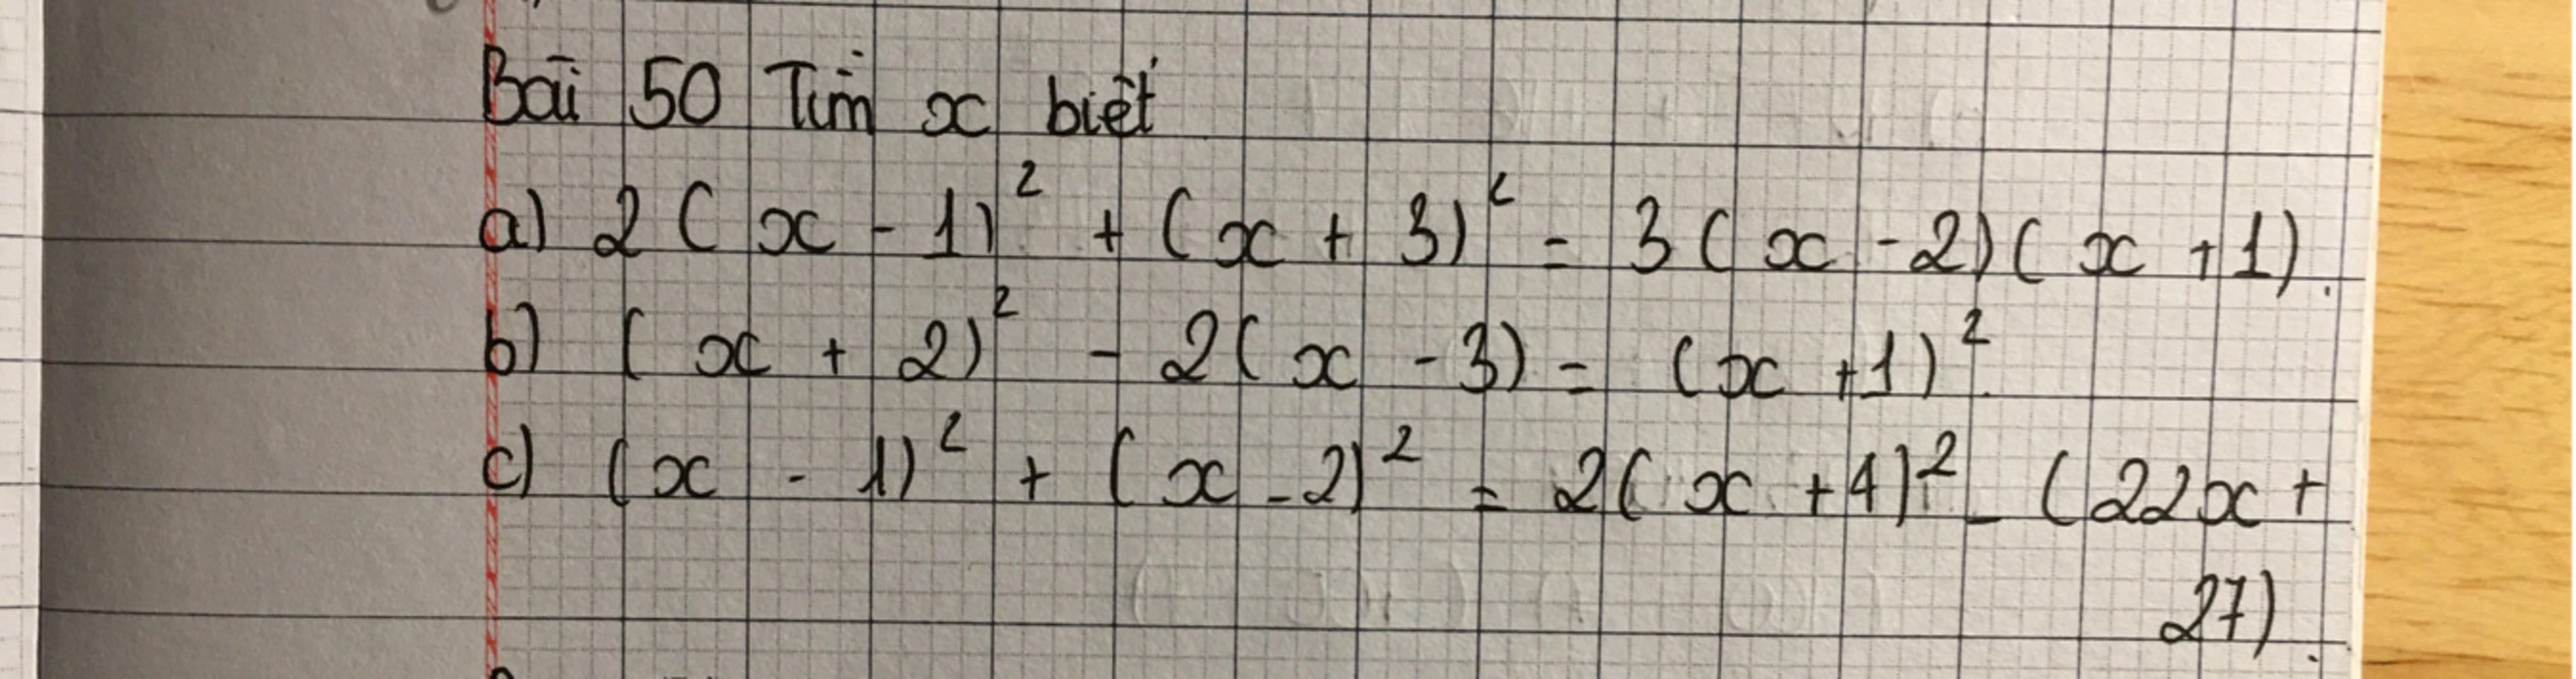 Bài 50 Tìm x biết
a) 2(x - 1)² + (x + 3)² = 3(x - 2)(x + 1).
b) (x + 2)² - 2(x - 3) = (x + 1)².
c) (x - 1)² + (x - 2)² = 2(x + 4)² - (22x +
27).